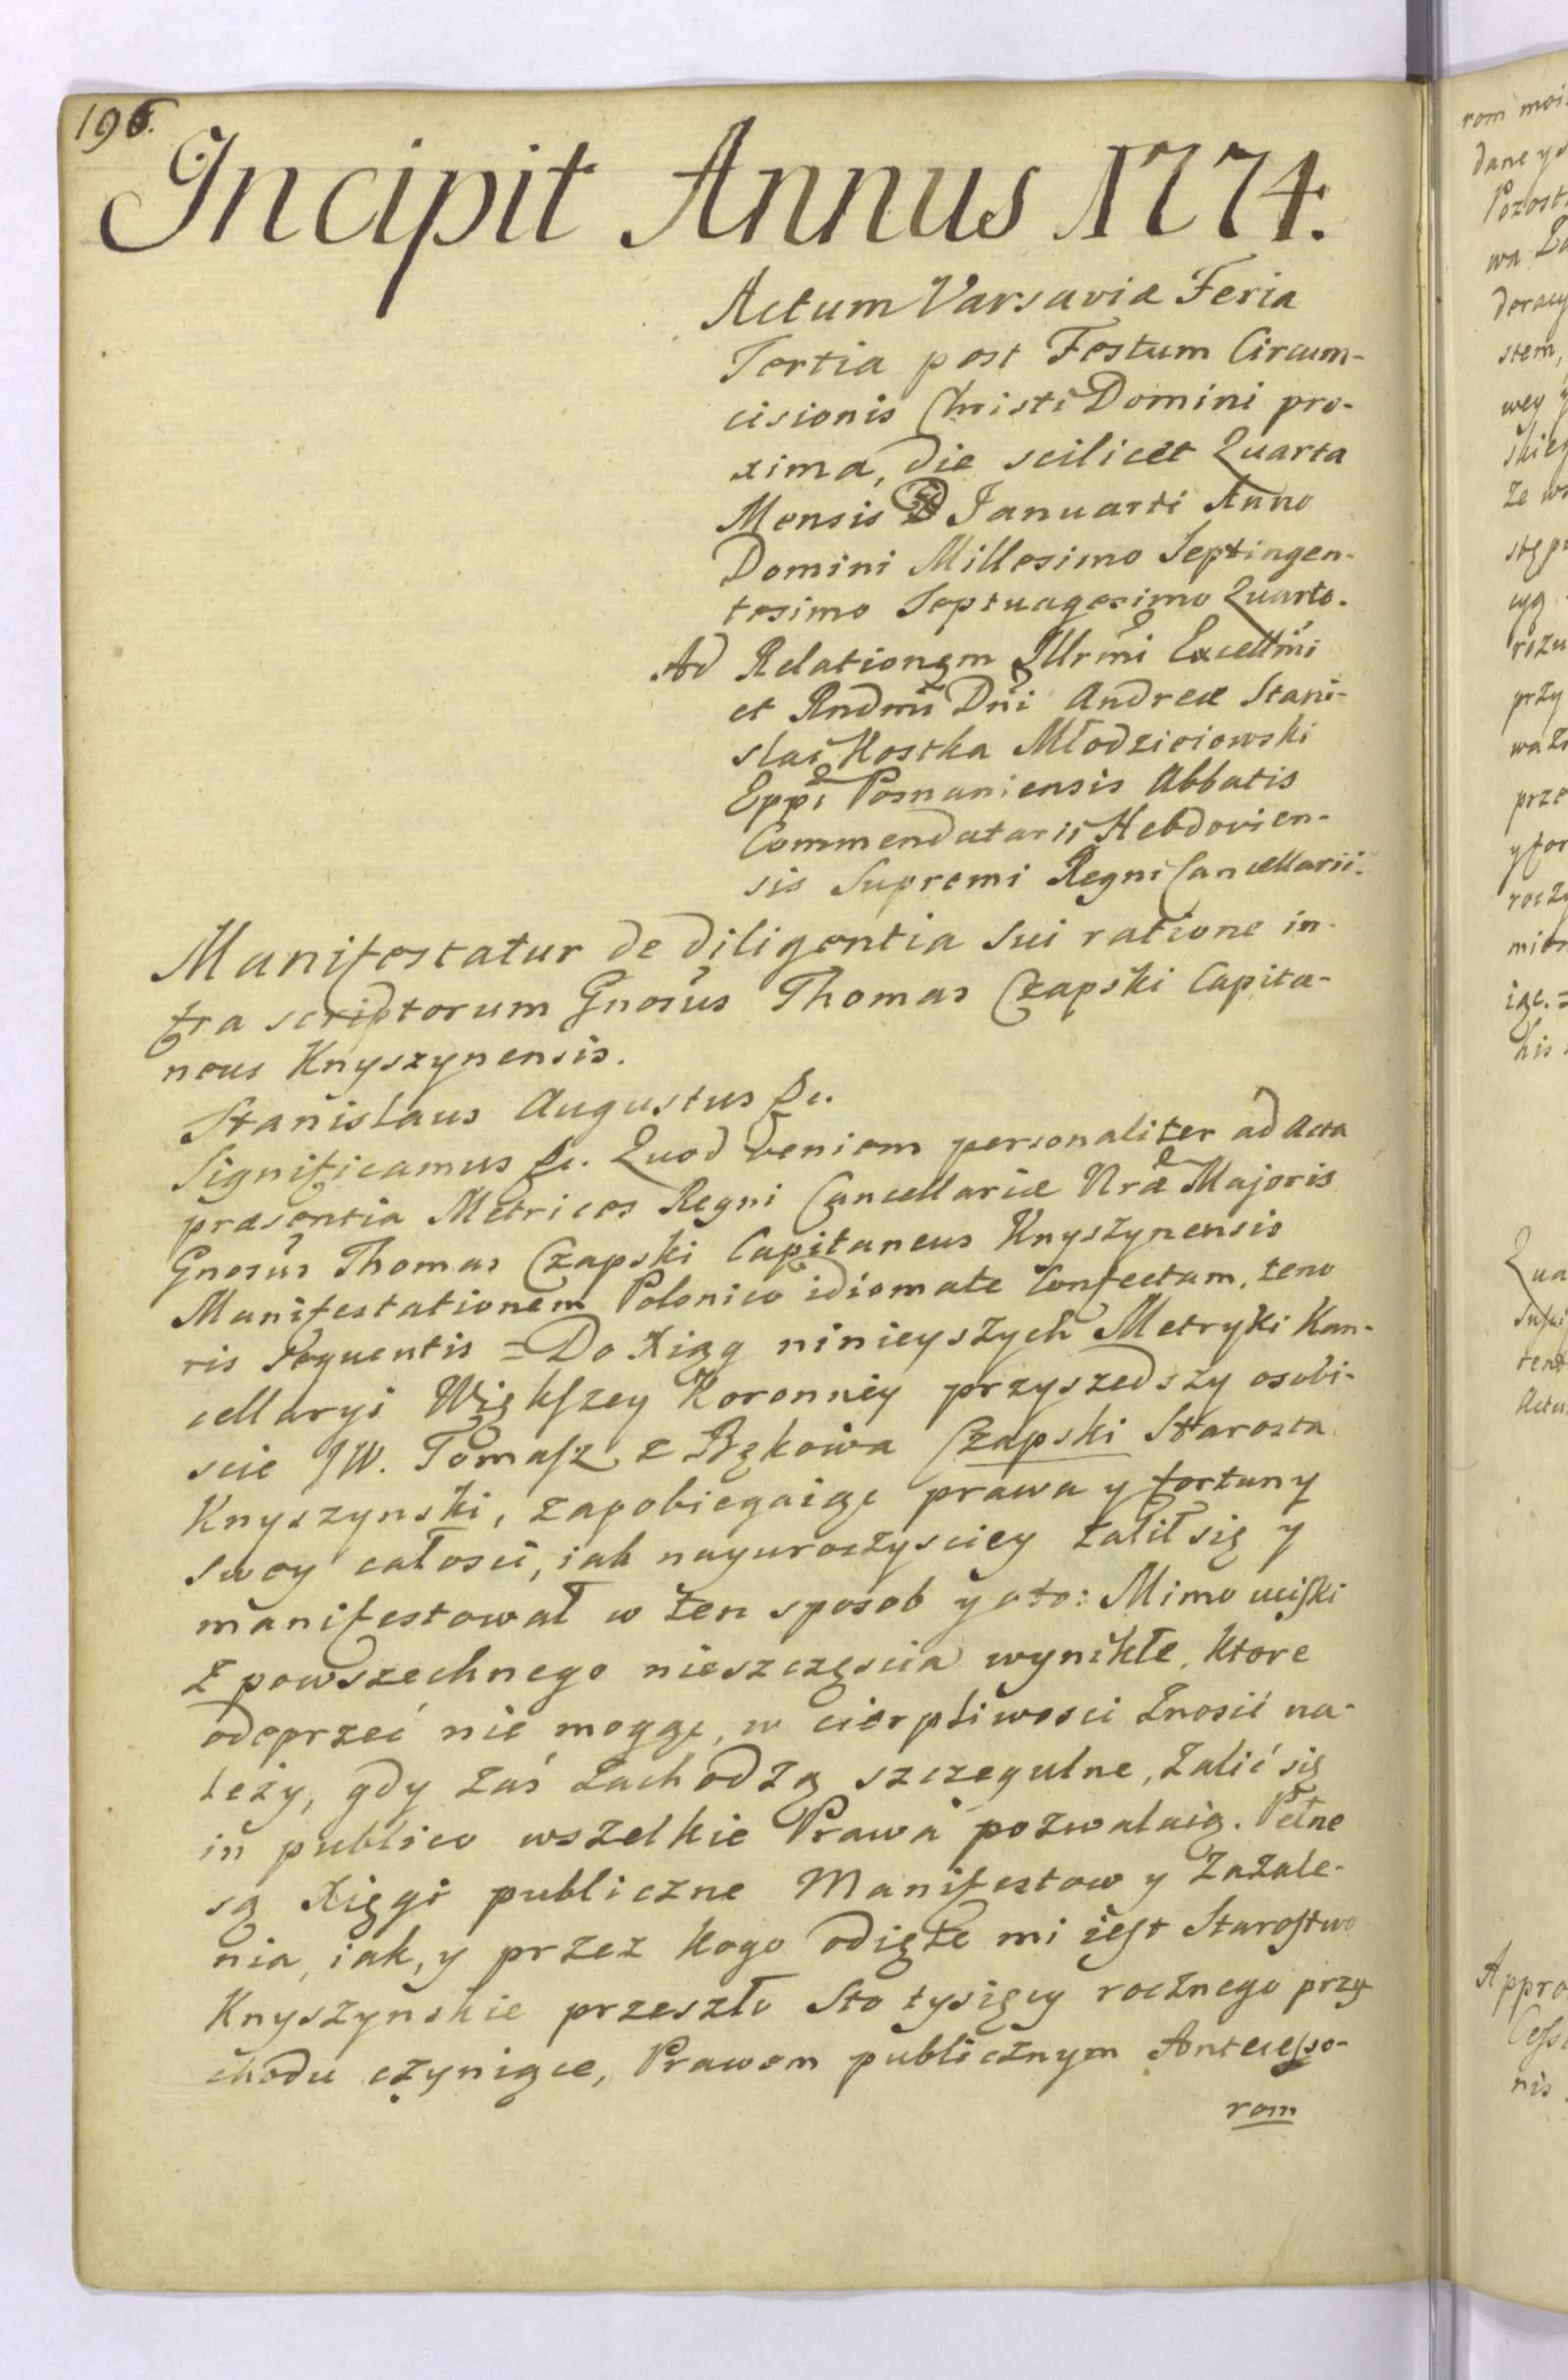 196.
Incipit Annus 1774.
Actum Varsaviæ Feria
Tertia post Festum Circum-
cisionis Christi Domini pro-
xima, die scilicet Quarta
Mensis Januarii Anno
Domini Millesimo Septingen-
tesimo Septuagesimo Quarto.
Ad Relationem Illrmi Excellmi
et Rndmi Dni Andreæ Stani-
slai Kostka Młodzieiowski
Eppi Posnaniensis Abbatis
Commendatarii Hebdovien-
sis Supremi Regni Cancellarii.
Manifestatur de diligentia sui ratione in-
fra scriptorum Gnosus Thomas Czapski Capita-
neus Knyszynensis.
Stanislaus Augustus &c.
Significamus &c. Quod veniens personaliter ad Acta
præsentia Metrices Regni Cancellariæ Nræ Majoris
Gnosus Thomas Czapski Capitaneus Knyszynensis
Manifestationem Polonico idiomate confectam, teno
ris sequentis = Do Xiąg ninieyszych Metryki Kan-
cellaryi Więkſzey Koronney przyszedszy osobi-
scie JW. Tomaſz z Bękowa Czapski Starosta
Knyszynski, zapobiegaiąc prawa y fortuny
swey całości, iak nayuroczysciey żalił się y
manifestował w ten sposob y oto: Mimo uciſki
z powszechnego nieszczęscia wynikłe, ktore
odeprzeć nie mogąc, w cierpliwosci znosić na-
leży, gdy zaś zachodzą szczegulne, żalić się
in publico wszelkie Prawa pozwalaią. Pełne
są Xięgi publiczne Manifestow y Zażale-
nia, iak, y przez kogo odięte mi ieſt Staroſtwo
Knyszynskie przeszło sto tysięcy rocznego przy-
chodu czyniące, Prawem publicznym Anteceſso-
rom
rom moi
dane y
Pozost
wa
stem,
wey y
skie
że w
przy
prze
y for
nis
Appro